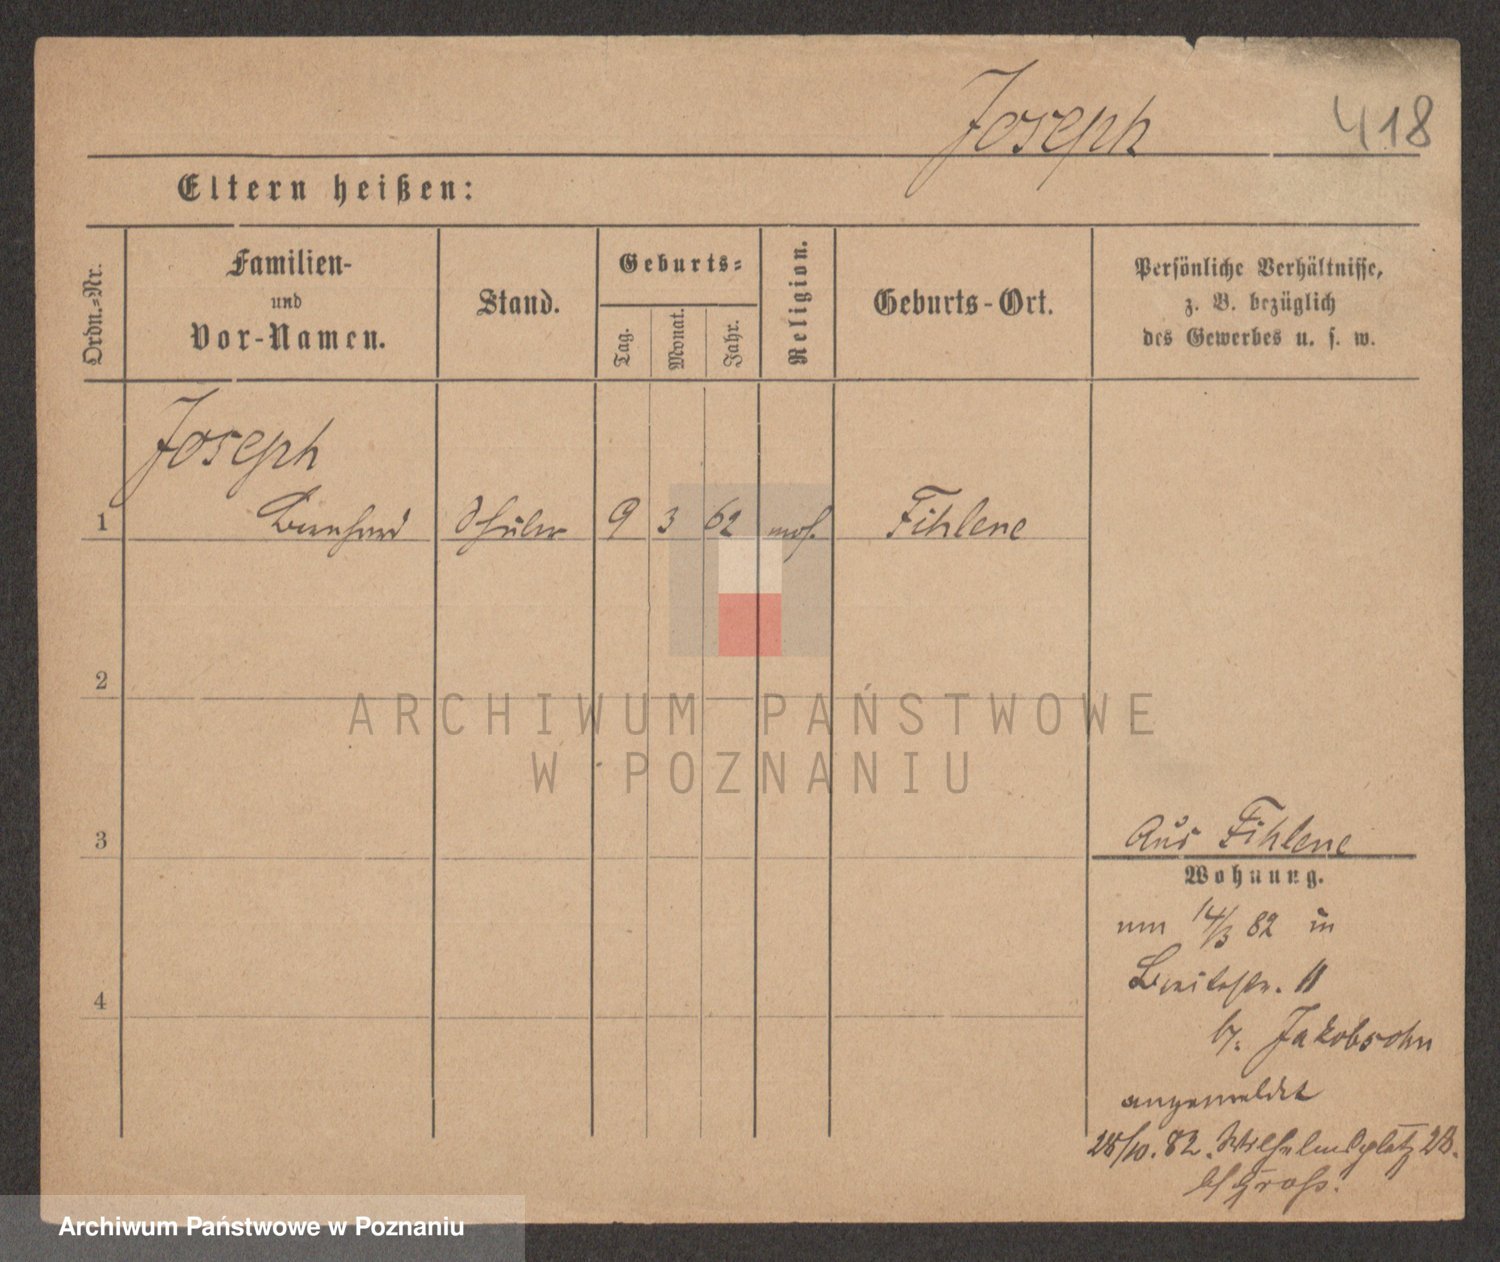 Joseph 418
Eltern heißen:
Ordn.-Nr.
Familien-
und
Vor-Namen.
Stand.
Geburts-
Tag.
Monat.
Jahr.
Religion.
Geburts-Ort.
Persönliche Verhältnisse,
z. B. bezüglich
des Gewerbes u. s. w.
Joseph
1 Bernhard Schüler 9 3 62 mos. Fihlene
2
3
4
Aus Fihlene
Wohnung.
um 14/3 82 in
Breitestr. 11
b. Jakobsohn
angemeldet
28/10. 82. Wilhelmsplatz
b/ Groß.
ARCHIWUM PAŃSTWOWE
W POZNANIU
Archiwum Państwowe w Poznaniu